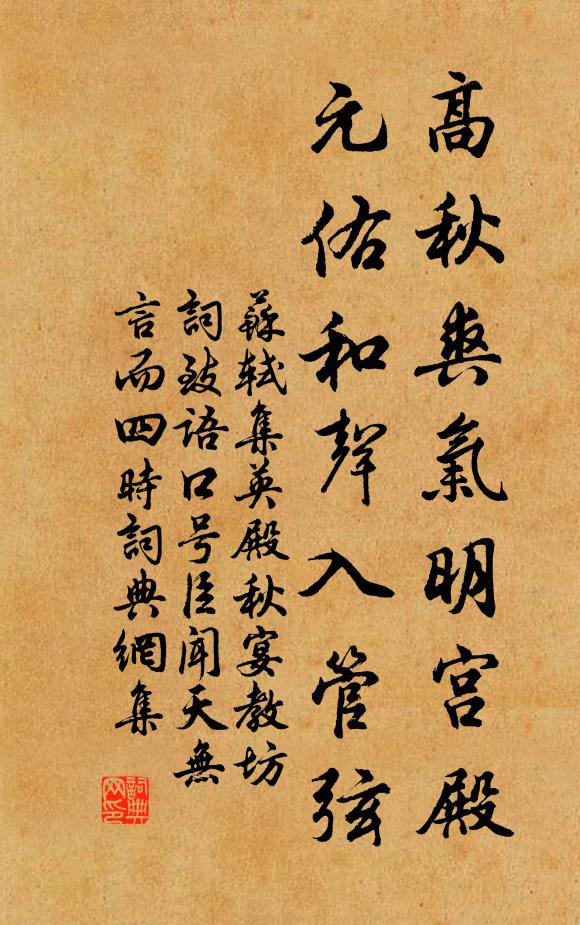 高秋爽氣明宮殿
元佑和聲入管弦
蘇軾集英殿秋宴教坊
詞致語口号臣聞天無
言而四時詞典網集
詞典网印